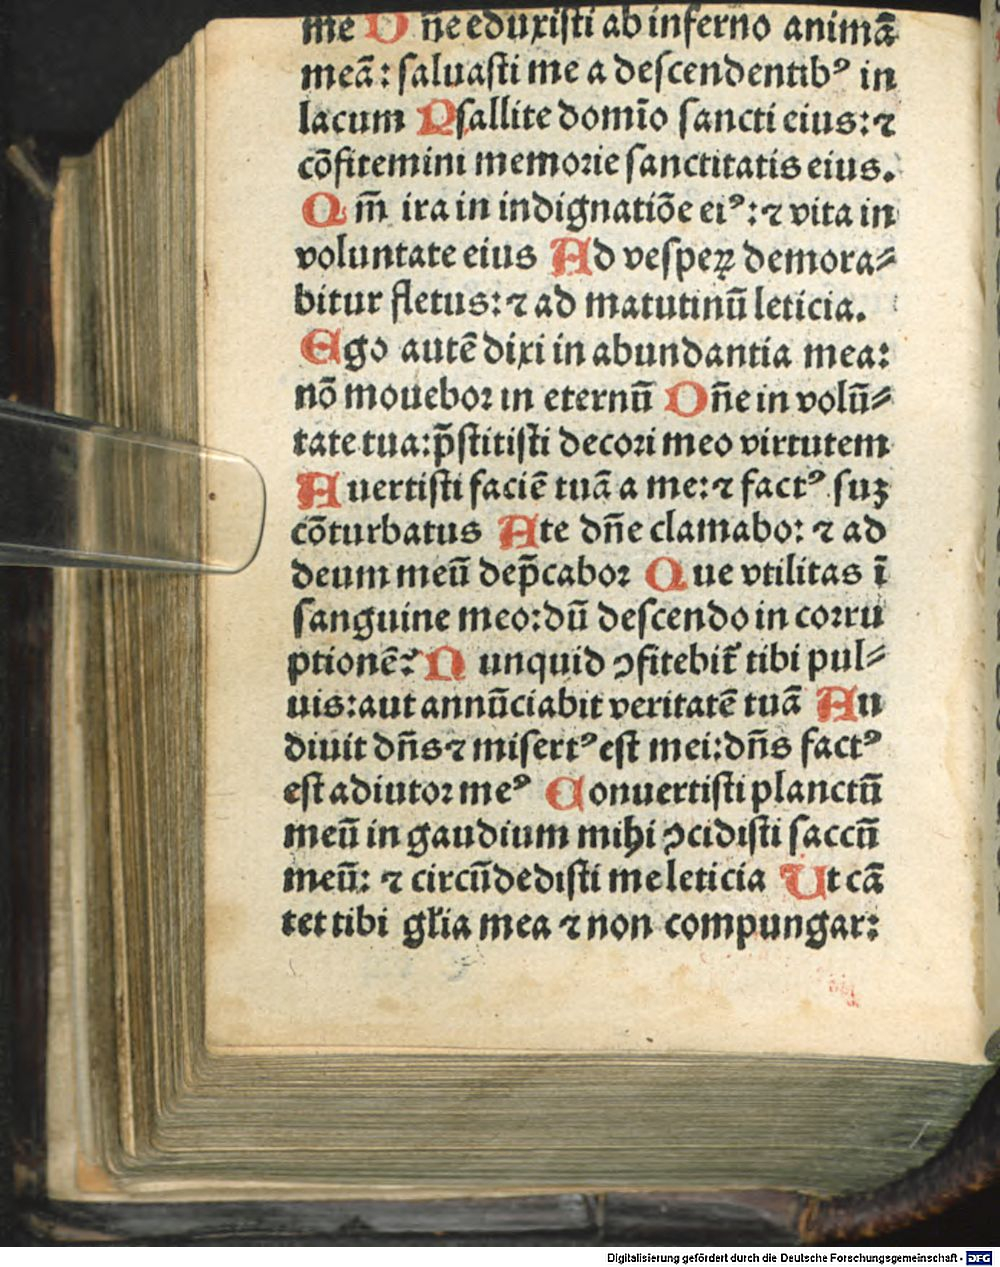 me Dñe eduxisti ab inferno animā
meā: saluasti me a descendentibꝰ in
lacum Psallite domīo sancti eius: ⁊
cōfitemini memorie sanctitatis eius.
Qm̄ ira in indignatiōe eiꝰ: ⁊ vita in
voluntate eius Ad vesperꝝ demora⸗
bitur fletus: ⁊ ad matutinū leticia.
Ego autē dixi in abundantia mea:
nō mouebor in eternū Dñe in volū⸗
tate tua: p̄stitisti decori meo virtutem
Auertisti faciē tuā a me: ⁊ factꝰ suꝫ
cōturbatus Ate dñe clamabo: ⁊ ad
deum meū dep̄cabor Que vtilitas ī
sanguine meo: dū descendo in corru
ptionē? Nunquid ꝯfitebit᷑ tibi pul⸗
uis: aut annūciabit veritatē tuā Au
diuit dñs ⁊ misertꝰ est mei: dñs factꝰ
est adiutor meꝰ Conuertisti planctū
meū in gaudium mihi ꝯcidisti saccū
meū: ⁊ circūdedisti me leticia Ut cā
tet tibi gl̄ia mea ⁊ non compungar:
Digitalisierung gefördert durch die Deutsche Forschungsgemeinschaft - DFG